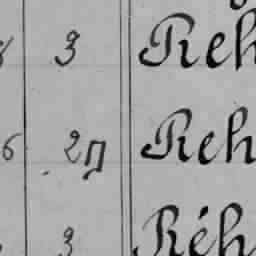 3 Reh
6 27 Reh
3 Réh